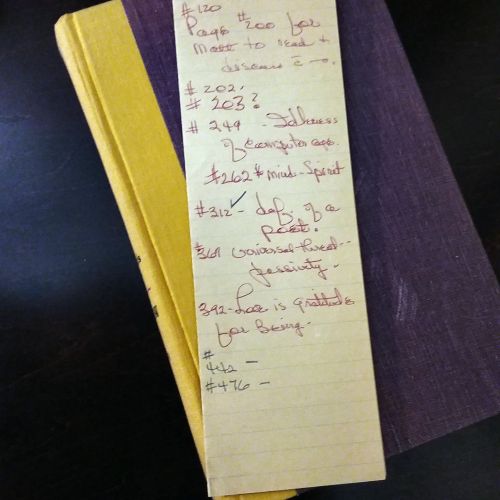 #120
Page #200 for
Matt to read +
discuss c̄
# 202.
# 203?
# 249 - Idleness
of computer age.
#262 # Mind-Spirit
#312 ✓ - def. of a
poet.
#361 Universal thread -
passivity.
392 - Love is gratitude
for Being.
#
442 -
#476 -